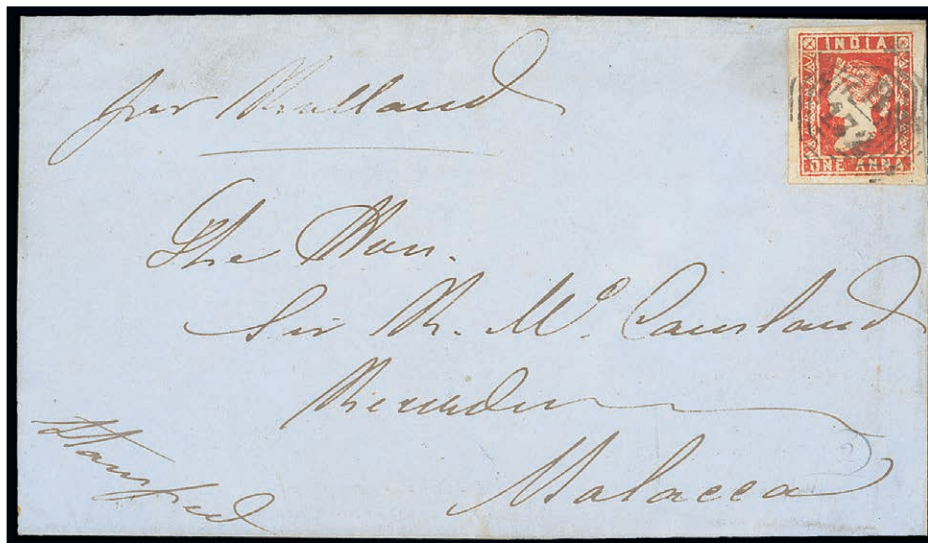 INDIA
ONE ANNA
per
The Hon.
Sir R. Mc. Causland
Recorder
Malacca
Stamped